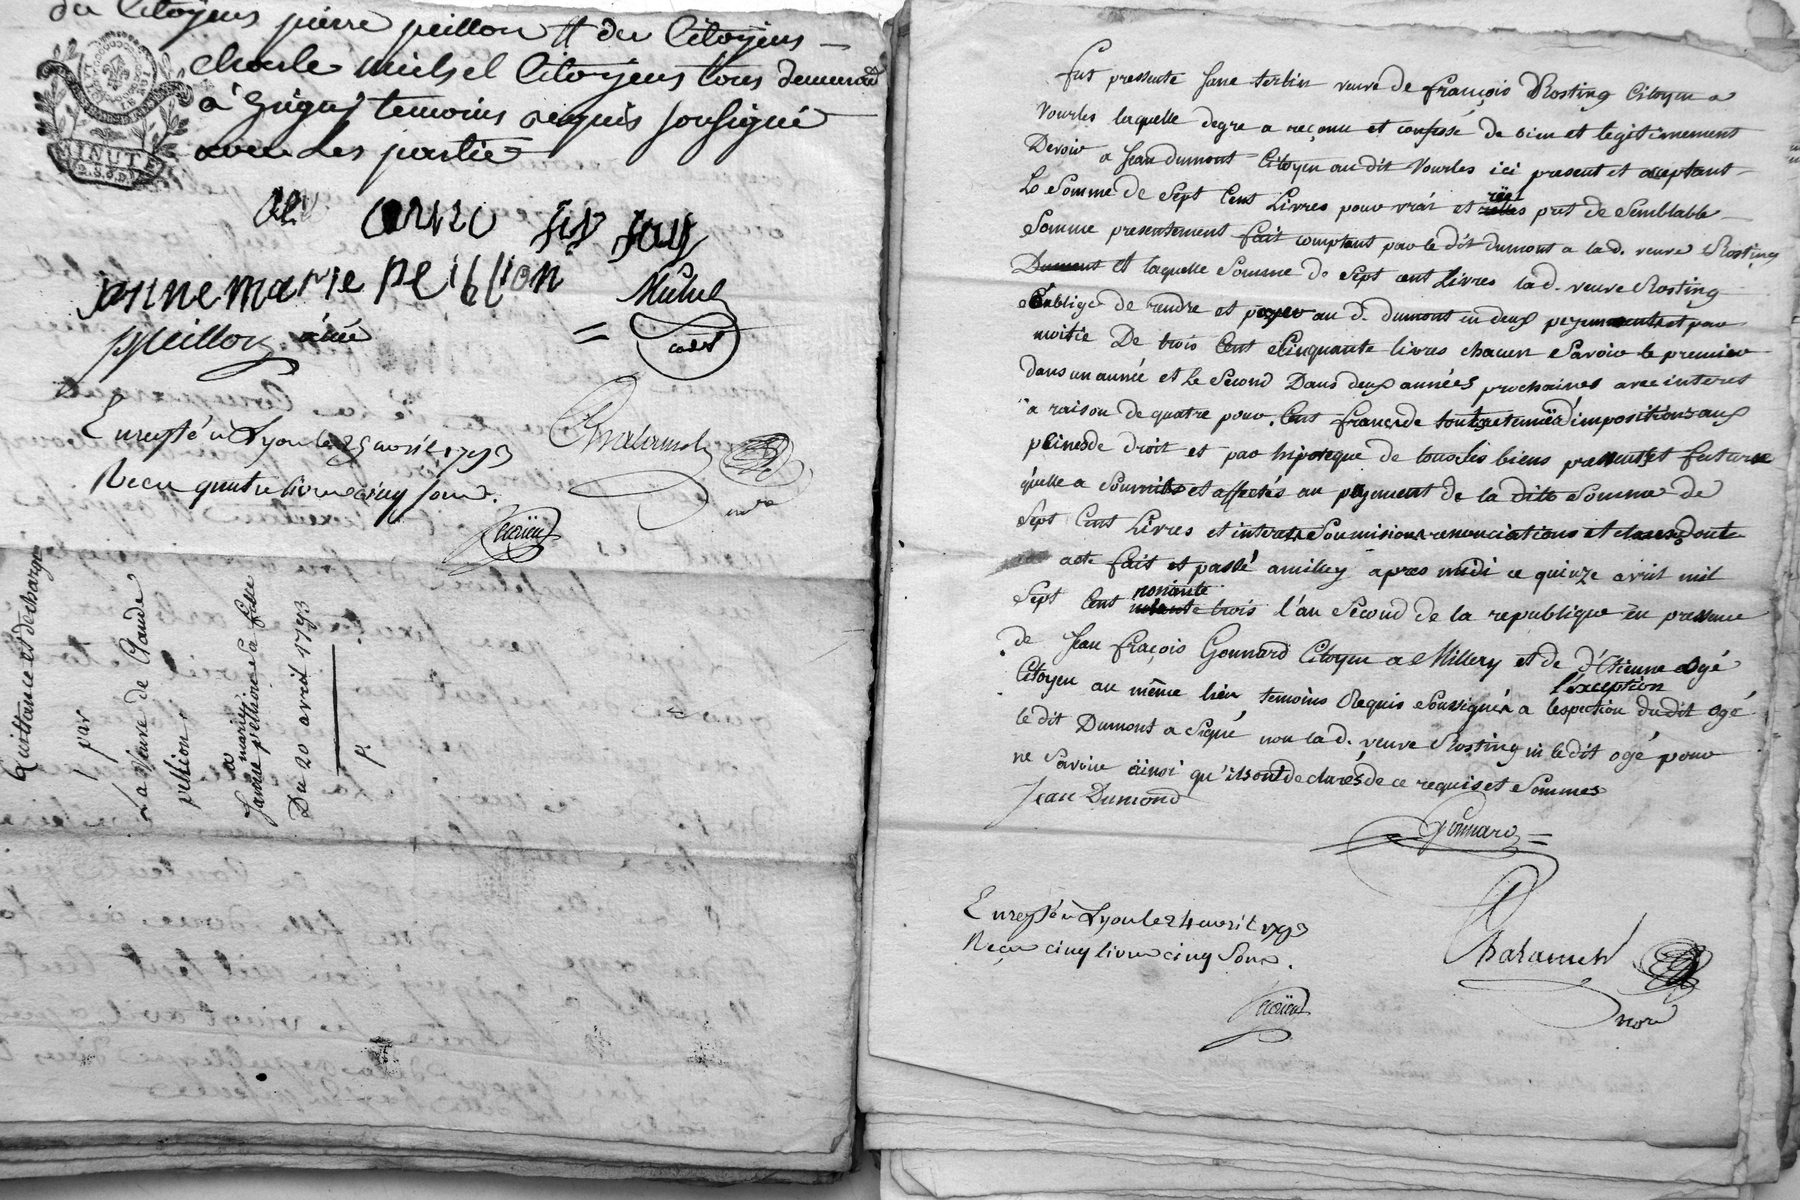 du Citoyens pierre peillon et du Citoyens
charle michel Citoyens tous demeurant
à grigny temoins requis sousigné
avec les partie
MINUTE
jeanne marie peillion
Michel cadet
ppeillon ainée
Enregtré à Lyon le 25 avril 1793
Recu quatre livres cinq sous.
Quittance et decharge
par
La veuve de Claude
pellion
a
marie
Du 20 avril 1793
fut presente veuve de françois Rosting Citoyen a
Vourles laquelle degre a reçonu et confessé de bien et legitimement
Devoir a Jean dumont Citoyen au dit Vourles ici present et aceptant
La Somme de Sept Cent Livres pour vrai et réel prit de Semblable
Somme presentement fait comptant par le dit dumont a lad. veuve Rosting
Dumont et laquelle Somme de Sept cent Livres lad. veuve Rosting
s'oblige de rendre et payer au d. dumont en deux peyements et par
moitie De trois Cent Cinquante livres chacun Savoir le premier
dans un année et le Second Dans deux années prochaines avec interet
a raison de quatre pour Cent de toutes d'impositions aux
peines de droit et par hipoteque de tous les biens presents et future
qu'elle a Soumits et affectés au payement de la dite Somme de
Sept Cent Livres et interets Soumisions renonciations et clauses dont
acte fait et passé a millery apres midi ce quinze avril mil
Sept Cent nonante trois l'an Second de la republique en presence
de Jean fraçois Gonnard Citoyen a Millery et de d'Etienne ogé
Citoyen au même lieu temoins Requis Soussignés a l'exception du dit ogé
le dit Dumont a Signé non lad. veuve Rosting ni le dit ogé pour
ne Savoir äinsi qu'ils ont declarés de ce requis et Sommés
Jean Dumond
Gonnard
Enregtré à Lyon le 24 avril 1793
Reçu cinq livres cinq Sous.